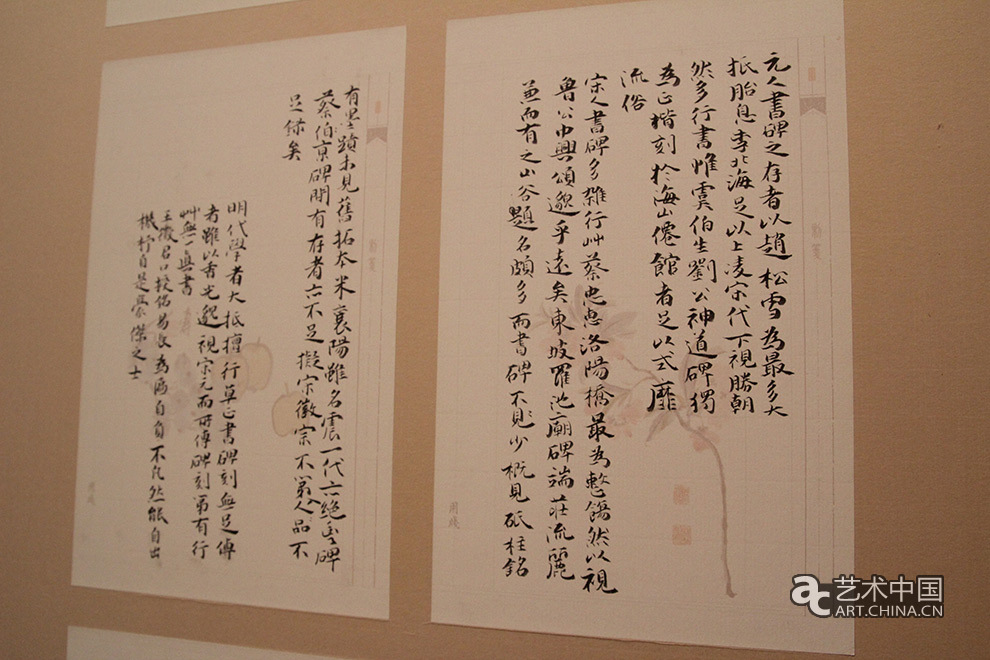 元人書碑之存者以趙松雪為最多大
抵胎息李北海足以上凌宋代下視勝朝
然多行書惟虞伯生劉公神道碑獨
為正楷刻於海山僊館者足以式靡
流俗
宋人書碑多雜行艸蔡忠惠洛陽橋最為整飭然以視
魯公中興頌邈乎遠矣東坡羅池廟碑端莊流麗
兼而有之山谷題名頗多而書碑不見少概見砥柱銘
有墨蹟未見舊拓本米襄陽雖名震一代亦絕少碑
蔡伯京碑間有存者亦不足擬宋徽宗不第人品不
足録矣
明代學者大抵擅行草正書碑刻無足傳
者雖以香光邈視宋元而所傳碑刻第有行
艸無一真書
王徵君口授偈易良為為自負不凡然能自出
機杼自是豪傑之士
用箋
艺术中国
ART.CHINA.CN